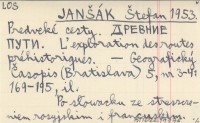 LOS
JANŠÁK Štefan 1953.
Predveké cesty. ДРЕВНИЕ
ПУТИ. L'exploration des routes
préhistoriques. — Geografický
Časopis (Bratislava) 5, nr. 3-4:
169-195, il.
Po słowacku ze streszcze-
niem rosyjskim i francuskim.